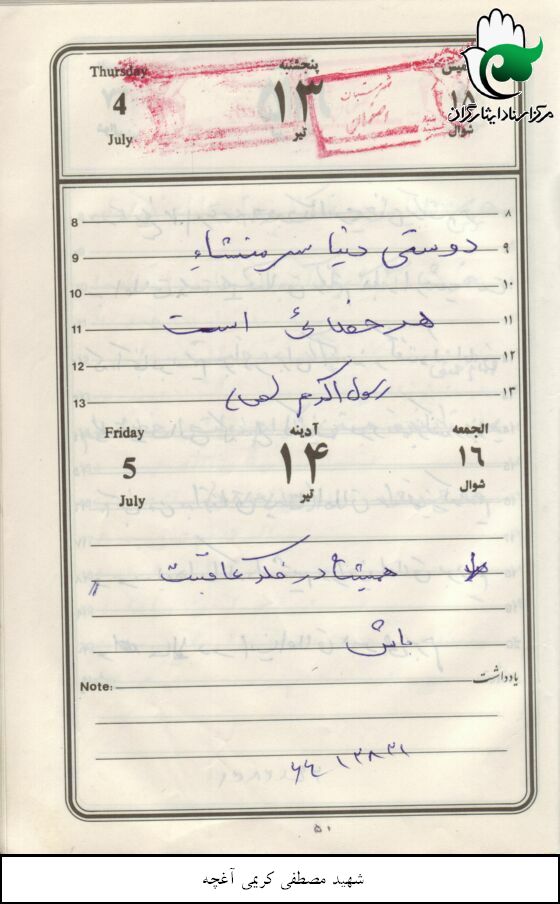 مرکز اسناد ایثارگران
Thursday پنجشنبه
4 ۱۳ ۱۸
July تیر شوال
شهرستان
8 ۸
دوستی دنیا سر منشاء
9 ۹
10 ۱۰
هر خطائی است
11 ۱۱
12 ۱۲
رسول اکرم (ص)
13 ۱۳
Friday آدینه الجمعه
5 ۱۴ ۱۶
July تیر شوال
همیشه در فکر عاقبت
باش
Note: یادداشت
۵۰
شهید مصطفی کریمی آغچه